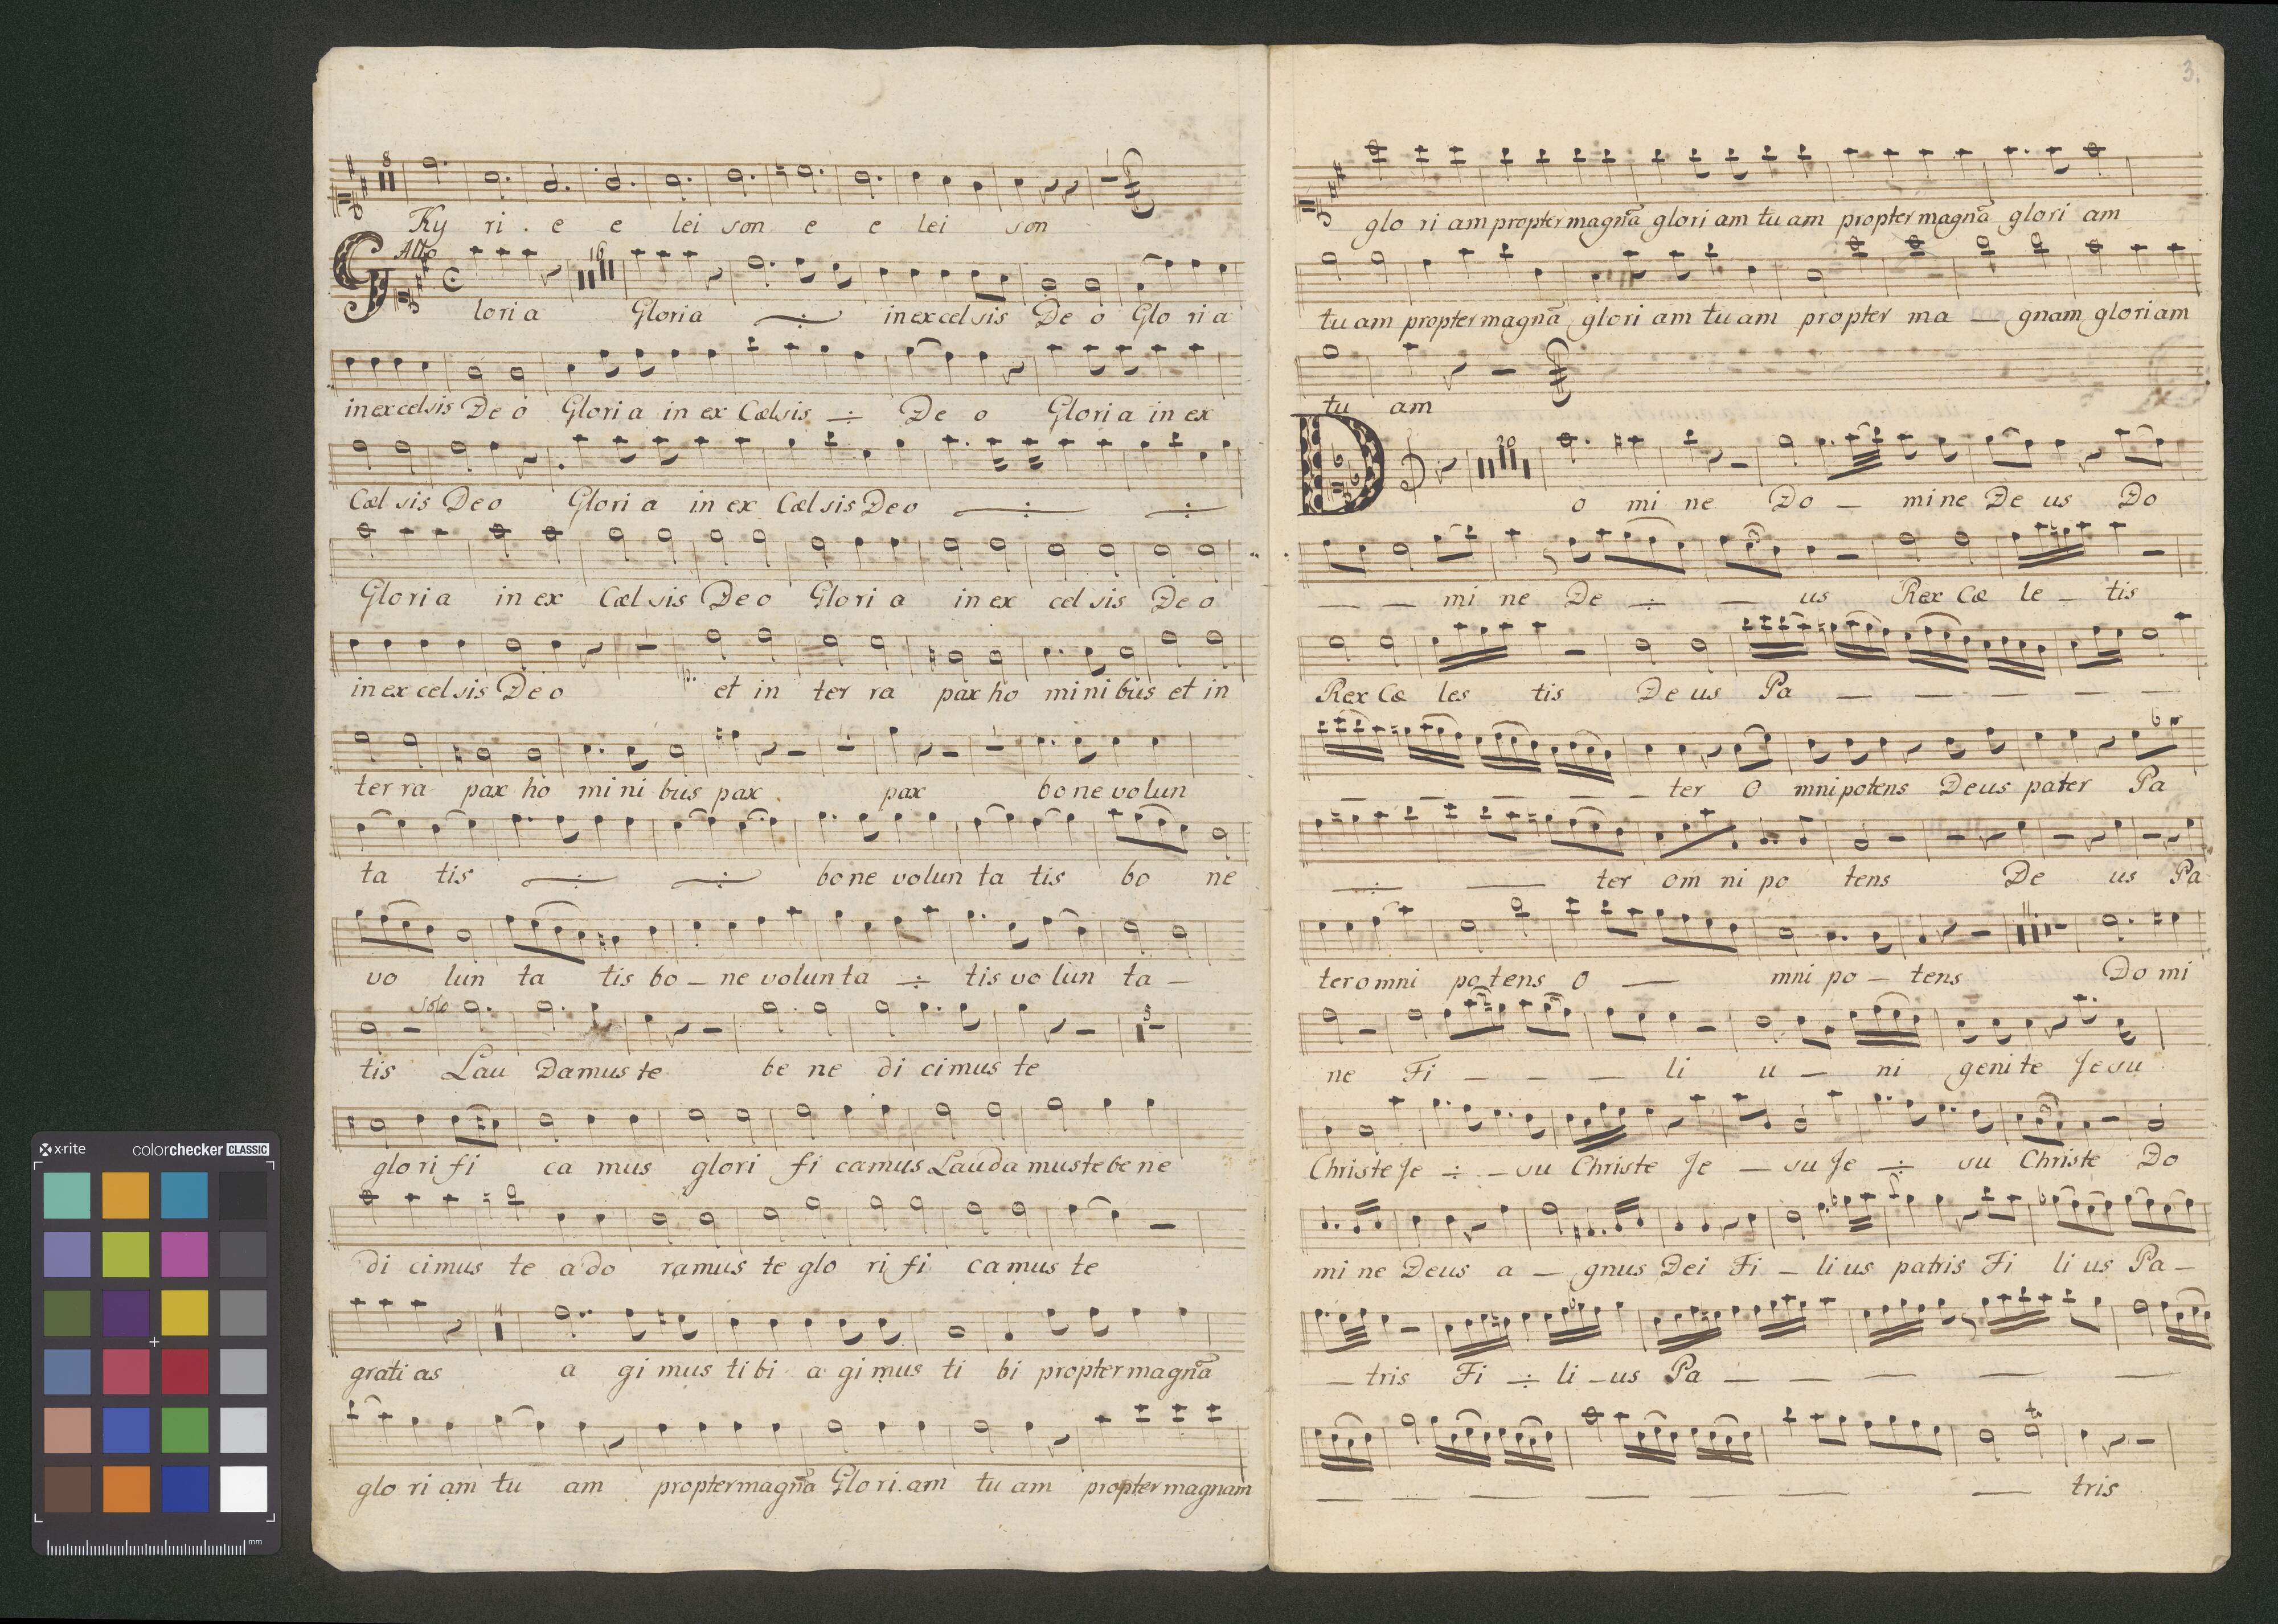 8
Ky ri . e e lei son e e lei son
Allo
16
Gloria Gloria in excelsis De o Glo ri a
in excelsis De o Glori a in ex Cælsis De o Glori a in ex
Cæl sis De o Glori a in ex Cæl sis De o
Glori a in ex Cæl sis De o Glo ri a in ex cel sis De o
in ex cel sis De o p. et in ter ra pax ho mi ni bus et in
ter ra pax ho mi ni bus pax pax bo ne vo lun
ta tis bo ne volun ta tis bo ne
vo lun ta tis bo – ne volun ta tis vo lun ta –
solo
5
tis Lau Damus te be ne di cimus te
glo ri fi ca mus glori fi camus Lauda mus te be ne
di cimus te a do ramus te glo ri fi camus te
grati as a gi mus ti bi a gi mus ti bi propter magnã
glo ri am tu am propter magnã Glo ri am tu am propter magnam
3.
glo ri am propter magnã glori am tu am propter magnã glori am
tu am propter magnã glori am tu am propter ma — gnam gloriam
tu am
20
Do mi ne Do – mi ne De us Do
— — mi ne De — us Rex Cæ le – tis
Rex Cæ les tis De us Pa — — — — —
— — — — – ter O mni potens Deus pater Pa
— ter om ni po tens De us Pa
ter omni po tens O — mni po – tens Do mi
ne Fi – – — li u – ni geni te Je su
Christe Je – su Christe Je – su Je su Christe Do
mi ne Deus a – gnus Dei Fi – li us patris Fi li us Pa –
– tris Fi li – us Pa – — — — —
— — — — — — tris
x·rite colorchecker CLASSIC
mm